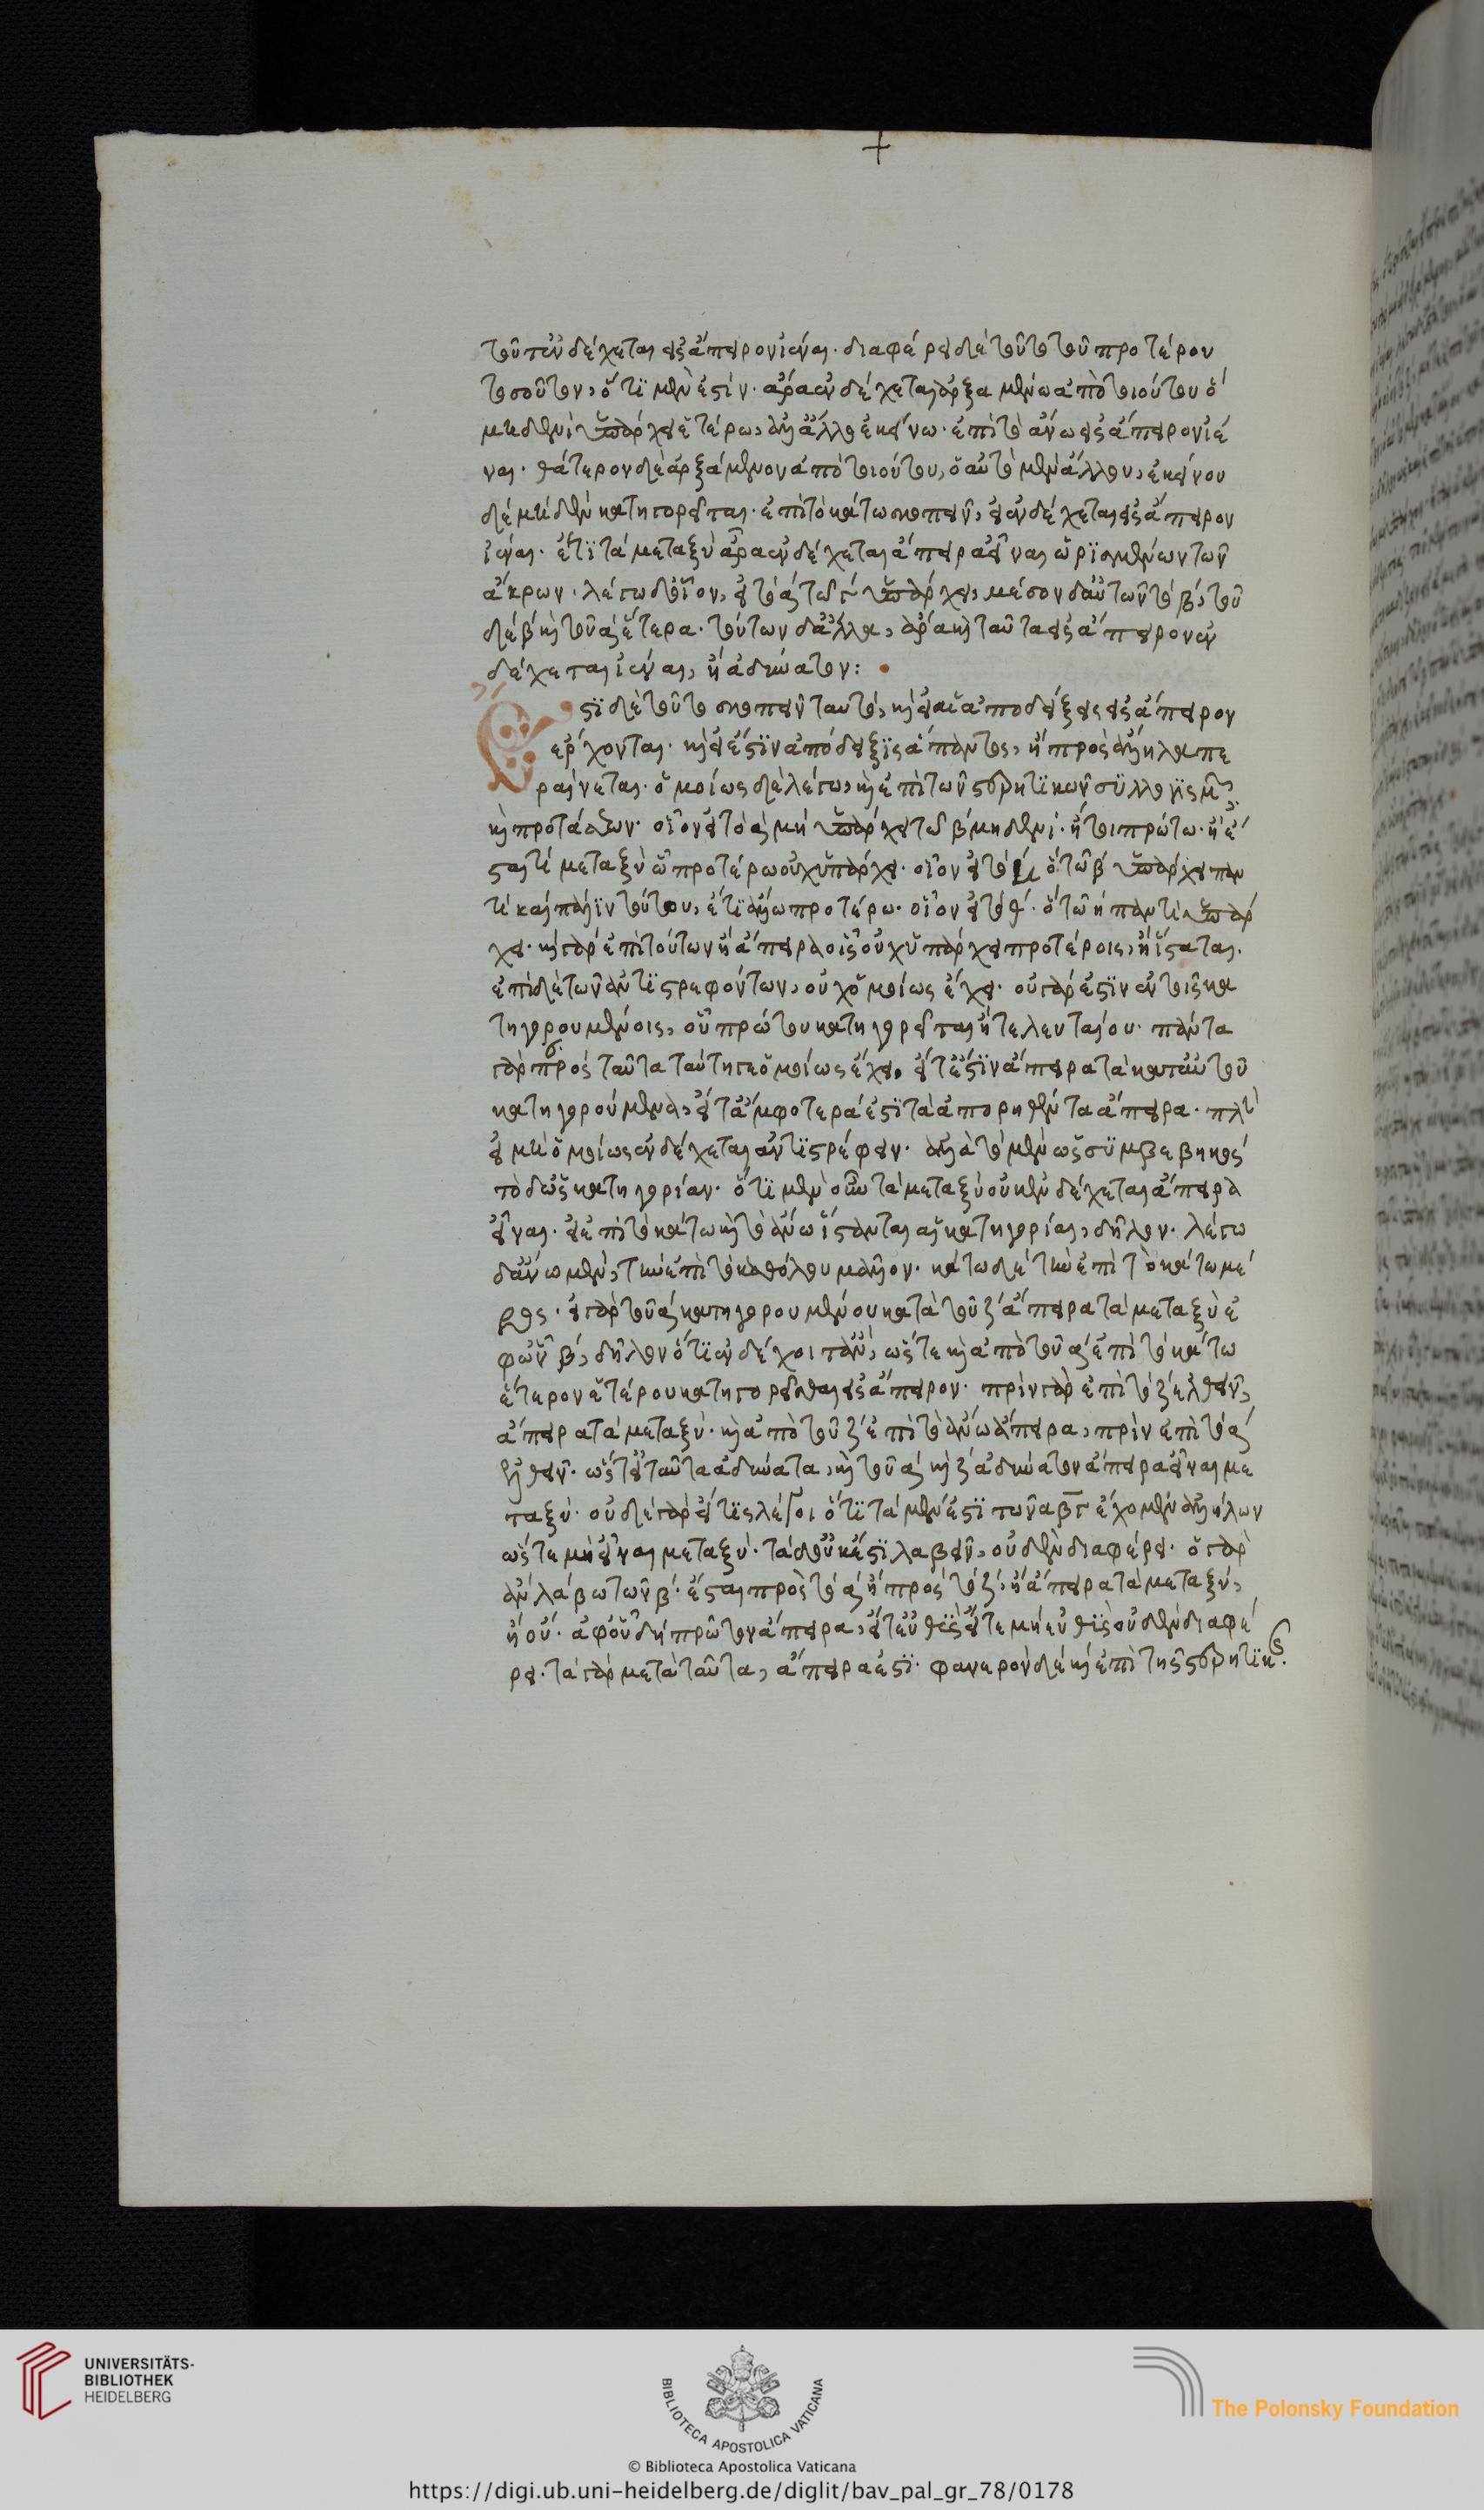 +
τοῦτ' ἐνδέχεται εἰς ἄπειρον ἰέναι. διαφέρει δὲ τοῦτο τοῦ πρότερον
τοσοῦτον, ὅτι μὲν ἐστίν. ἆρα ἐνδέχεται ἀρξαμένω ἀπὸ τοιούτου ὃ
μηδενὶ ὑπάρχει ἑτέρω, ἀλλ' ἄλλο ἐκείνω. ἐπὶ τὸ ἄνω εἰς ἄπειρον ἰέ
ναι. θάτερον δὲ ἀρξάμενον ἀπὸ τοιούτου, ὃ αὐτὸ μὲν ἄλλου, ἐκείνου
δὲ μηδὲν κατηγορεῖται. ἐπὶ τὸ κάτω σκοπεῖν, εἰ ἐνδέχεται εἰς ἄπειρον
ἰέναι. ἔτι τὰ μεταξὺ ἆρα ἐνδέχεται ἄπειρα εἶναι ὡρισμένων τῶν
ἄκρων. λέγω δ' οἷον, εἰ τὸ α τῶ γ ὑπάρχει, μέσον δ' αὐτῶν τὸ β, τοῦ
δὲ β καὶ τοῦ α ἕτερα. τούτων δ' ἄλλα, ἆρα καὶ ταῦτα εἰς ἄπειρον ἐν
δέχεται ἰέναι, ἢ ἀδύνατον:
Ἔστι δὲ τοῦτο σκοπεῖν ταυτό, καὶ εἰ αἱ ἀποδείξεις εἰς ἄπειρον
ἔρχονται. καὶ εἰ ἔστιν ἀπόδειξις ἅπαντος, ἢ πρὸς ἄλληλα πε
ραίνεται. ὁμοίως δὲ λέγω, καὶ ἐπὶ τῶν στερητικῶν συλλογισμῶν
καὶ προτάσεων. οἷον εἰ τὸ α μὴ ὑπάρχει τῶ β μηδενί. ἤτοι πρώτω. ἢ ἔ
σται τὶ μεταξὺ ὧ προτέρω οὐχ ὑπάρχει. οἷον εἰ τὸ ὃ τῶ β ὑπάρχει παν
τί καὶ πάλιν τούτου, ἔτι ἄλλω προτέρω. οἷον εἰ τὸ θ. ὃ τῶ η παντὶ ὑπάρ
χει. καὶ γὰρ ἐπὶ τούτων ἢ ἄπειρα οἷς οὐχ ὑπάρχει προτέροις, ἢ ἵσταται.
ἐπὶ δὲ τῶν ἀντιστρεφόντων, οὐχ ὁμοίως ἔχει. οὐ γὰρ ἔστιν ἐν τοῖς κα
τηγορουμένοις, οὗ πρώτου κατηγορεῖται ἢ τελευταίου. πάντα
γὰρ πρὸς ταῦτα ταύτη γε ὁμοίως ἔχει, εἴτ' ἔστιν ἄπειρα τὰ κατ' αὐτοῦ
κατηγορούμενα, εἴτ' ἀμφότερά ἐστι τὰ ἀπορηθέντα ἄπειρα. πλὴν
εἰ μὴ ὁμοίως ἐνδέχεται ἀντιστρέφειν. ἀλλὰ τὸ μὲν ὡς συμβεβηκός
τὸ δ' ὡς κατηγορίαν. ὅτι μὲν οὖν τὰ μεταξὺ οὐκ ἐνδέχεται ἄπειρα
εἶναι. εἰ ἐπὶ τὸ κάτω καὶ τὸ ἄνω ἵστανται αἱ κατηγορίαι, δῆλον. λέγω
δ' ἄνω μὲν, τὴν ἐπὶ τὸ καθόλου μᾶλλον. κάτω δὲ τὴν ἐπὶ τὸ κάτω μέ
ρος. εἰ γὰρ τοῦ α κατηγορουμένου κατὰ τοῦ ζ ἄπειρα τὰ μεταξὺ ἐ
φ' ὧν β, δῆλον ὅτι ἐνδέχοιτ' ἂν, ὥστε καὶ ἀπὸ τοῦ α ἐπὶ τὸ κάτω
ἕτερον ἑτέρου κατηγορεῖσθαι εἰς ἄπειρον. πρὶν γὰρ ἐπὶ τὸ ζ ἐλθεῖν,
ἄπειρα τὰ μεταξύ. καὶ ἀπὸ τοῦ ζ ἐπὶ τὸ ἄνω ἄπειρα, πρὶν ἐπὶ τὸ α
ἐλθεῖν. ὥστ' εἰ ταῦτα ἀδύνατα, καὶ τοῦ α καὶ ζ ἀδύνατον ἄπειρα εἶναι με
ταξύ. οὐδὲ γὰρ εἴ τις λέγοι ὅτι τὰ μέν ἐστι τῶν αβγ ἐχόμενα ἀλλήλων
ὥστε μὴ εἶναι μεταξύ. τὰ δ' οὐκ ἔστι λαβεῖν, οὐδὲν διαφέρει. ὃ γὰρ
ἂν λάβω τῶν β. ἔσται πρὸς τὸ α ἢ πρὸς τὸ ζ, ἢ ἄπειρα τὰ μεταξύ,
ἢ οὔ. ἀφ' οὗ δὴ πρῶτον ἄπειρα, εἴτ' εὐθὺς εἴτε μὴ εὐθὺς οὐδὲν διαφέ
ρει. τὰ γὰρ μετὰ ταῦτα, ἄπειρα ἐστι. φανερὸν δὲ καὶ ἐπὶ τῆς στερητικῆς.
UNIVERSITÄTS-
BIBLIOTHEK
HEIDELBERG
BIBLIOTECA APOSTOLICA VATICANA
The Polonsky Foundation
© Biblioteca Apostolica Vaticana
https://digi.ub.uni-heidelberg.de/diglit/bav_pal_gr_78/0178